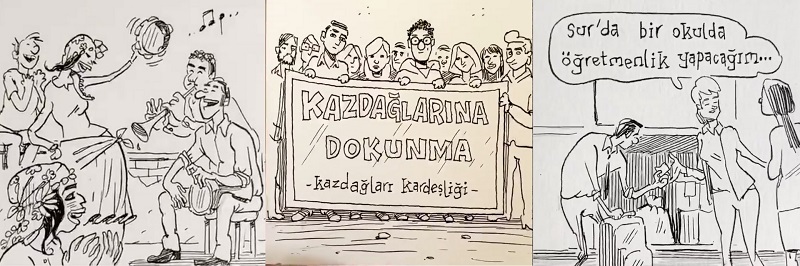 KAZDAĞLARINA
DOKUNMA
-kazdağları kardeşliği-
Sur'da bir okulda
öğretmenlik yapacağım...